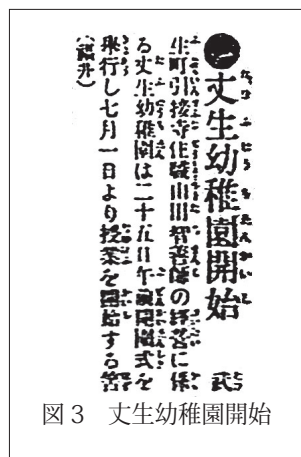 ●丈生幼稚園開始 武
生町引接寺住職山田智善師の經營に係
る丈生幼稚園は二十五日午前開園式を
擧行し七月一日より授業を開始する筈
(福井)
図3 丈生幼稚園開始